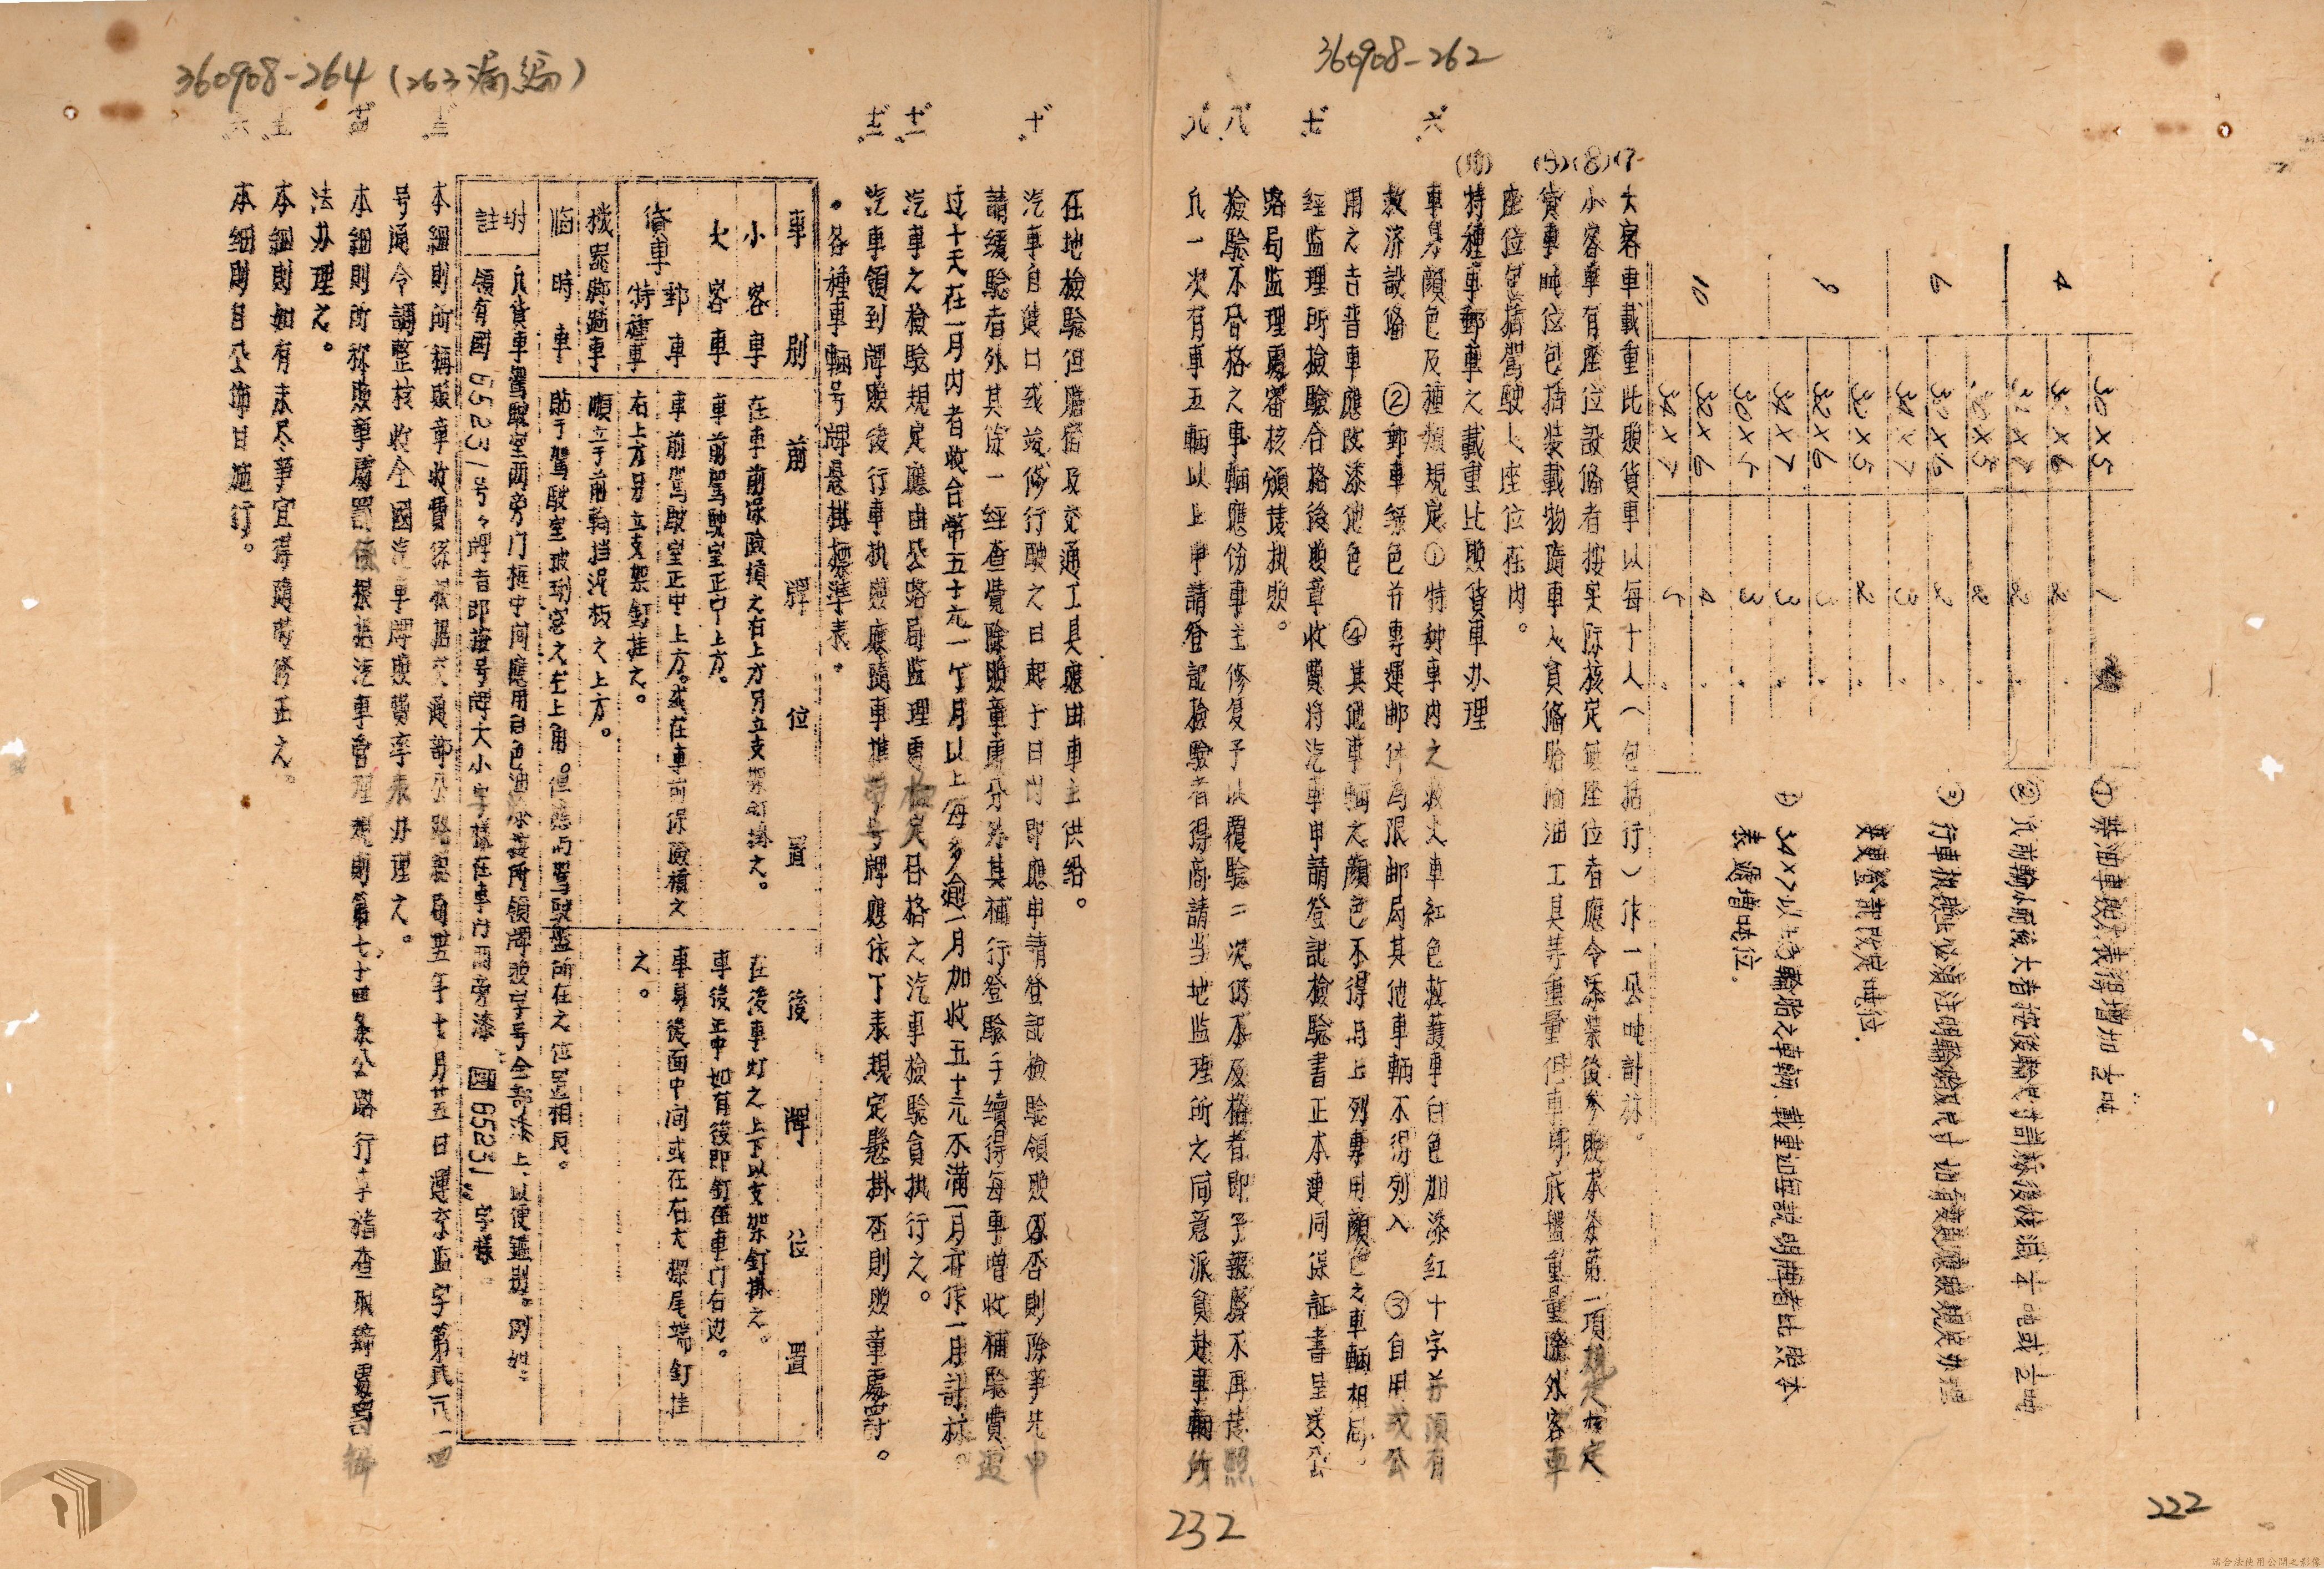 360908-262
4
30×5
1
30×6
2
32×6
2
6
30×5
2
32×6
2
34×7
3
9
30×5
2
32×6
3
34×7
3
10
30×5
3
32×6
4
34×7
5
①柴油車照表得增加壹吨
②凡前輪小而後大者按後輪尺寸計標後核減半吨或壹吨
③行車执照上必須注明輪胎尺寸如有變更應照規定办理
變更登記改定吨位.
④34×7以上輪胎之車輌,載重如無說明牌者比照本
表遞增吨位.
(7)大客車載重比照貨車以每十人(包括行)作一公吨計标。
(8)小客車有座位設備者按实际核定無座位者應令添装後參照本条第一項規定核定
(9)貨車吨位包括裝載物隨車人員俻胎滴油工具等重量但車身底盤重量除外客車
座位包括駕駛人座位在內。
(10)特種車郵車之載重比照貨車办理
六、車身顏色及種類規定①特种車內之救火車紅色救護車白色加漆红十字并須有
救济設俻 ②郵車綠色并專運邮件為限邮局其他車輌不得列入 ③自用或公
用之吉普車應改漆他色 ④其他車輌之顏色不得與上列專用顏色之車輌相同。
七、經監理所檢驗合格後照章收費將汽車申請登記檢驗書正本連同保証書呈送公
路局監理處審核頒發执照。
八、檢驗不合格之車輌應飭車主修复予以覆驗二次仍不及格者即予報廢不再發照
九、凡一次有車五輌以上申請登記檢驗者得商請当地监理所之同意派員赴車輌所
232
222
360908-264(263漏編)
在地檢驗但膳宿及交通工具應由車主供給。
十、汽車自進口或竣修行駛之日起十日內即應申請登記檢驗領照否則除事先申
請緩驗者外其除一經查覺除照章處分外其補行登驗手續得每車增收補驗費逾
过十天在一月内者收台幣五十元一个月以上每多逾一月加收五十元不滿一月亦作一月計标。
十一、汽車之檢驗規定應由公路局监理處檢定合格之汽車檢驗員执行之。
十二、汽車領到牌照後行車执照應隨車携帶号牌應依下表規定懸掛否則照章處罰。
•各種車輛号牌懸掛標準表。
車別
前牌位置
後牌位置
小客車
在車前保險槓之右上方另立支架釘掛之。
在後車灯之上下以支架釘掛之。
大客車
車前駕駛室正中上方。
車後正中如有後即釘在車门右边。
貨車
郵車
特種車
車前駕駛室正中上方。或在車前保險槓之
右上方另立支架釘挂之。
車身後面中间或在右大樑尾端釘挂
之。
機器脚踏車
順立于前輪挡泥板之上方。
臨時車
貼于駕駛室玻璃窓之左上角。但應與駕駛盤所在之位置相反。
坿註
凡貨車駕駛室兩旁门框中间應用白色油漆將所領牌照字号全部漆上以便鑑别。例如:
領有國65231号牌者即按号牌大小字樣在車门兩旁漆 國65231 字樣。
十三、本細則所稱照章收費係根据交通部公路總局卅五年十月廿五日運京监字第
号通令調整核收全國汽車牌照費率表办理之。
十四、本細則所称照章處罰係根据汽車管理規則第七十四条公路行車稽查取締處罰辦
法办理之。
十五、本細則如有未尽事宜得隨時修正之。
十六、本細則自公佈日施行。
請合法使用公開之影像